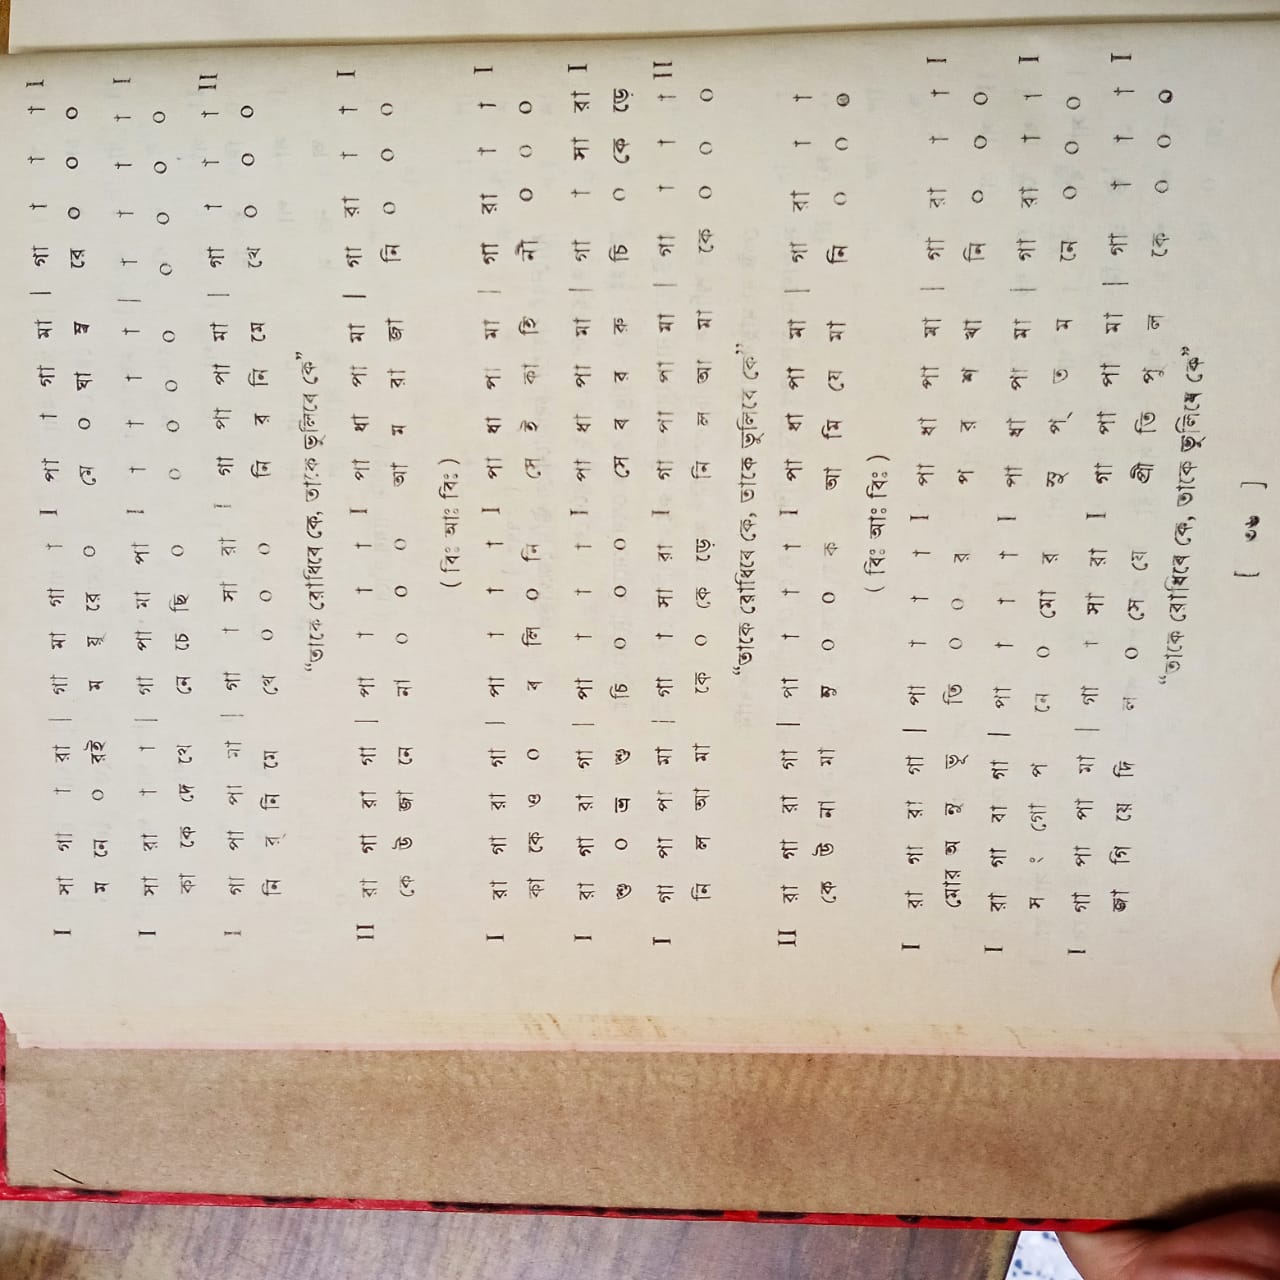 I সা গা া রা | গা মা গা া I পা া গা মা | গা া া া I
ম নে ০ রই ম য়ূ রে ০ মে ০ ঘা ম্ব রে ০ ০ ০
I সা রা া া | গা পা মা পা I া া া া | া া া া I
কা কে দে খে নে চে ছি ০ ০ ০ ০ ০ ০ ০ ০ ০
I গা পা পা মা | গা া সা রা I গা পা পা মা | গা া া া II
নি র্ নি মে খে ০ ০ ০ নি র নি মে খে ০ ০ ০
“তাকে রোধিবে কে, তাকে ভুলিবে কে”
II রা গা রা গা | পা া া া I পা ধা পা মা | গা রা া া I
কে উ জা নে না ০ ০ ০ আ ম রা জা নি ০ ০ ০
( বিঃ আঃ বিঃ )
I রা গা রা গা | পা া া া I পা ধা পা মা | গা রা া া I
কা কে ও ০ ব লি ০ নি সে ই কা হি নী ০ ০ ০
I রা গা রা গা | পা া া া I পা ধা পা মা | গা া সা রা I
শু ০ ভ্র শু চি ০ ০ ০ সে ব র ক চি ০ কে ড়ে
I গা পা পা মা | গা া সা রা I গা পা পা মা | গা া া া II
নি ল আ মা কে ০ কে ড়ে নি ল আ মা কে ০ ০ ০
“তাকে রোধিবে কে, তাকে ভুলিবে কে”
II রা গা রা গা | পা া া া I পা ধা পা মা | গা রা া া
কে উ না মা নু ০ ০ ক আ মি যে মা নি ০ ০ ০
( বিঃ আঃ বিঃ )
I রা গা রা গা | পা া া া I পা ধা পা মা | গা রা া া I
মোর অ নু ভু তি ০ ০ র প র শ খা নি ০ ০ ০
I রা গা রা গা | পা া া া I পা ধা পা মা | গা রা া া I
স ং গো প নে ০ মো র সু প্ ত ম নে ০ ০ ০
I গা পা পা মা | গা া সা রা I গা পা পা মা | গা া া া I
জা গি য়ে দি ল ০ সে যে প্রী তি পু ল কে ০ ০ ০
“তাকে রোধিবে কে, তাকে ভুলিবে কে”
[ ৩৬ ]